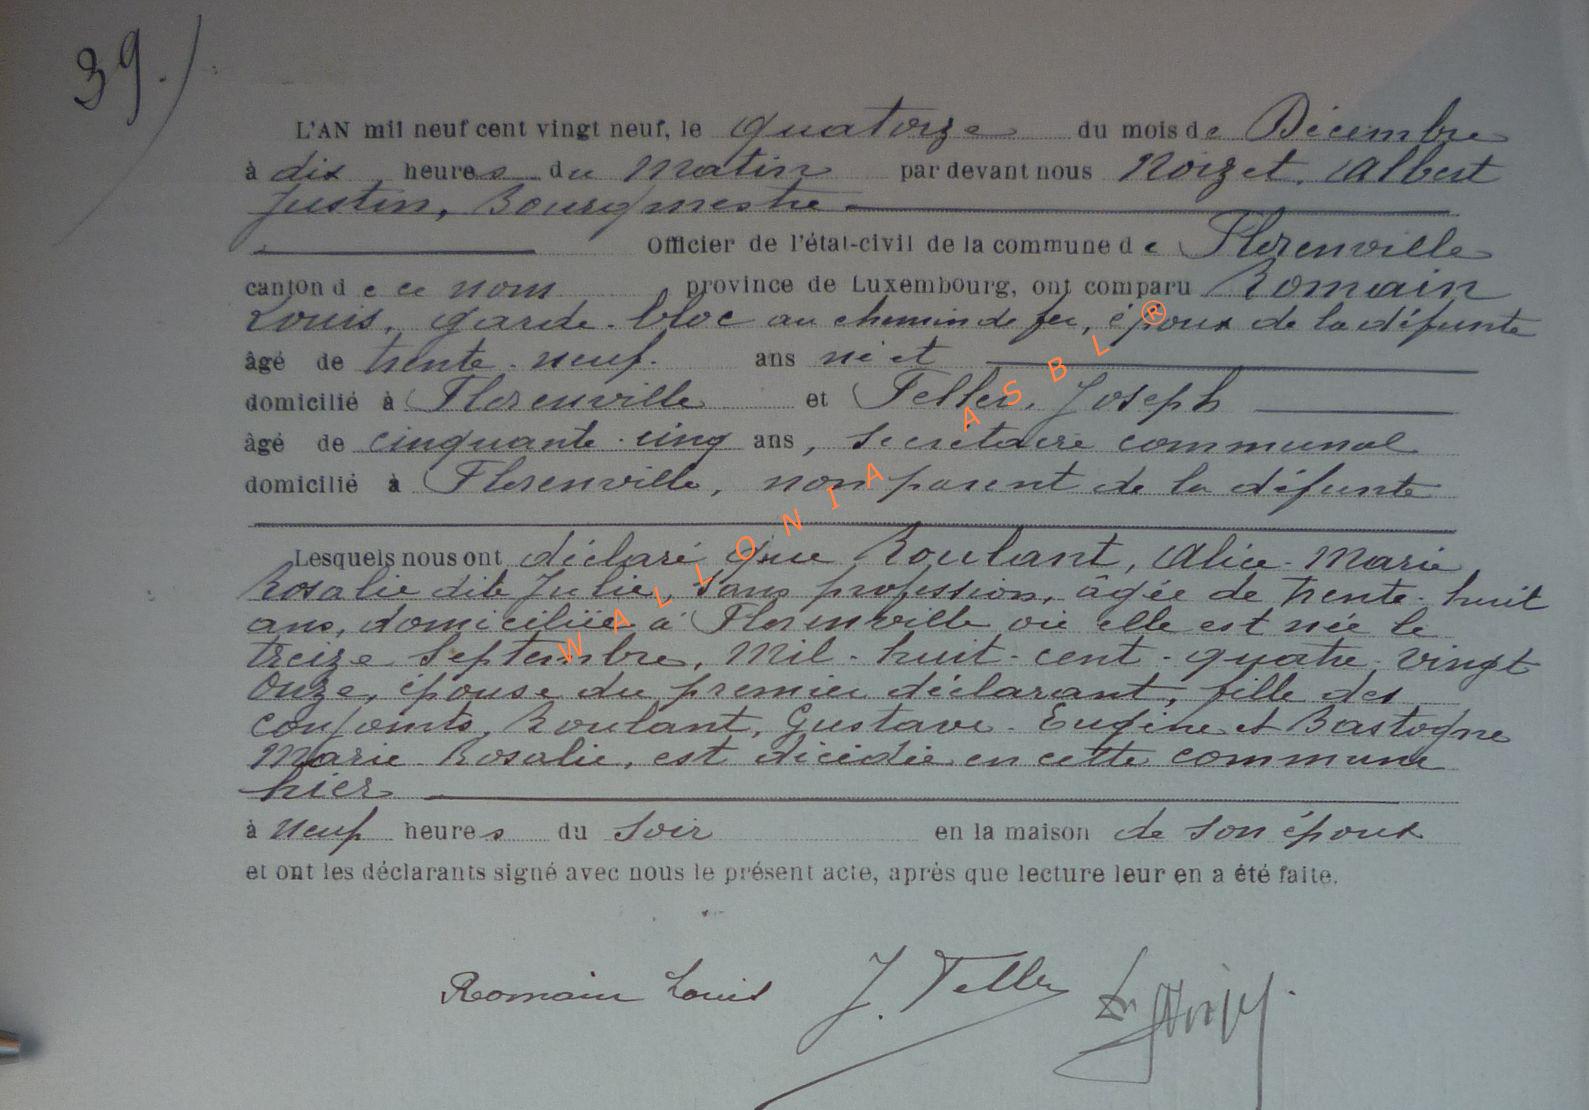 39.
L'AN mil neuf cent vingt neuf, le quatorze du mois de Décembre
à dix heures du matin par devant nous Noizet, Albert
Justin, Bourgmestre
Officier de l'état-civil de la commune de Florenville
canton de ce nom province de Luxembourg, ont comparu Romain
Louis, garde-bloc au chemin de fer, époux de la défunte
âgé de trente-neuf ans né et
domicilié à Florenville et Feller, Joseph
âgé de cinquante-cinq ans, secrétaire communal
domicilié à Florenville, non parent de la défunte
Lesquels nous ont déclaré que Roulant, Alice-Marie
Rosalie dite Julie, sans profession, âgée de trente-huit
ans, domiciliée à Florenville où elle est née le
treize Septembre, mil-huit-cent-quatre-vingt
onze, épouse du premier déclarant, fille des
conjoints, Roulant, Gustave-Eugène et Bastogne
Marie-Rosalie, est décédée en cette commune
hier
à neuf heures du soir en la maison de son époux
et ont les déclarants signé avec nous le présent acte, après que lecture leur en a été faite.
Romain Louis J. Feller
WALLONIA ASBL ®